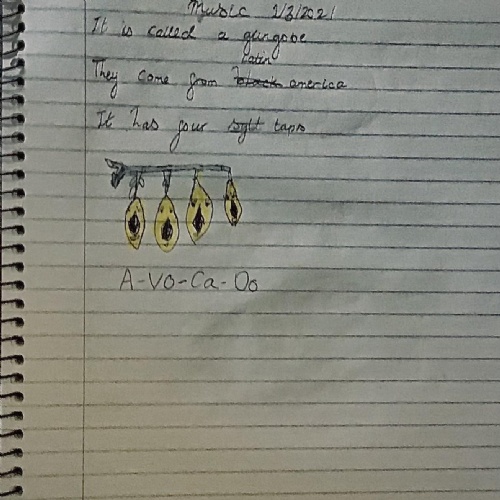 Music 2/3/2021
It is called a gungobe
Latin
They come from america
It has four taps
A-Vo-Ca-Do